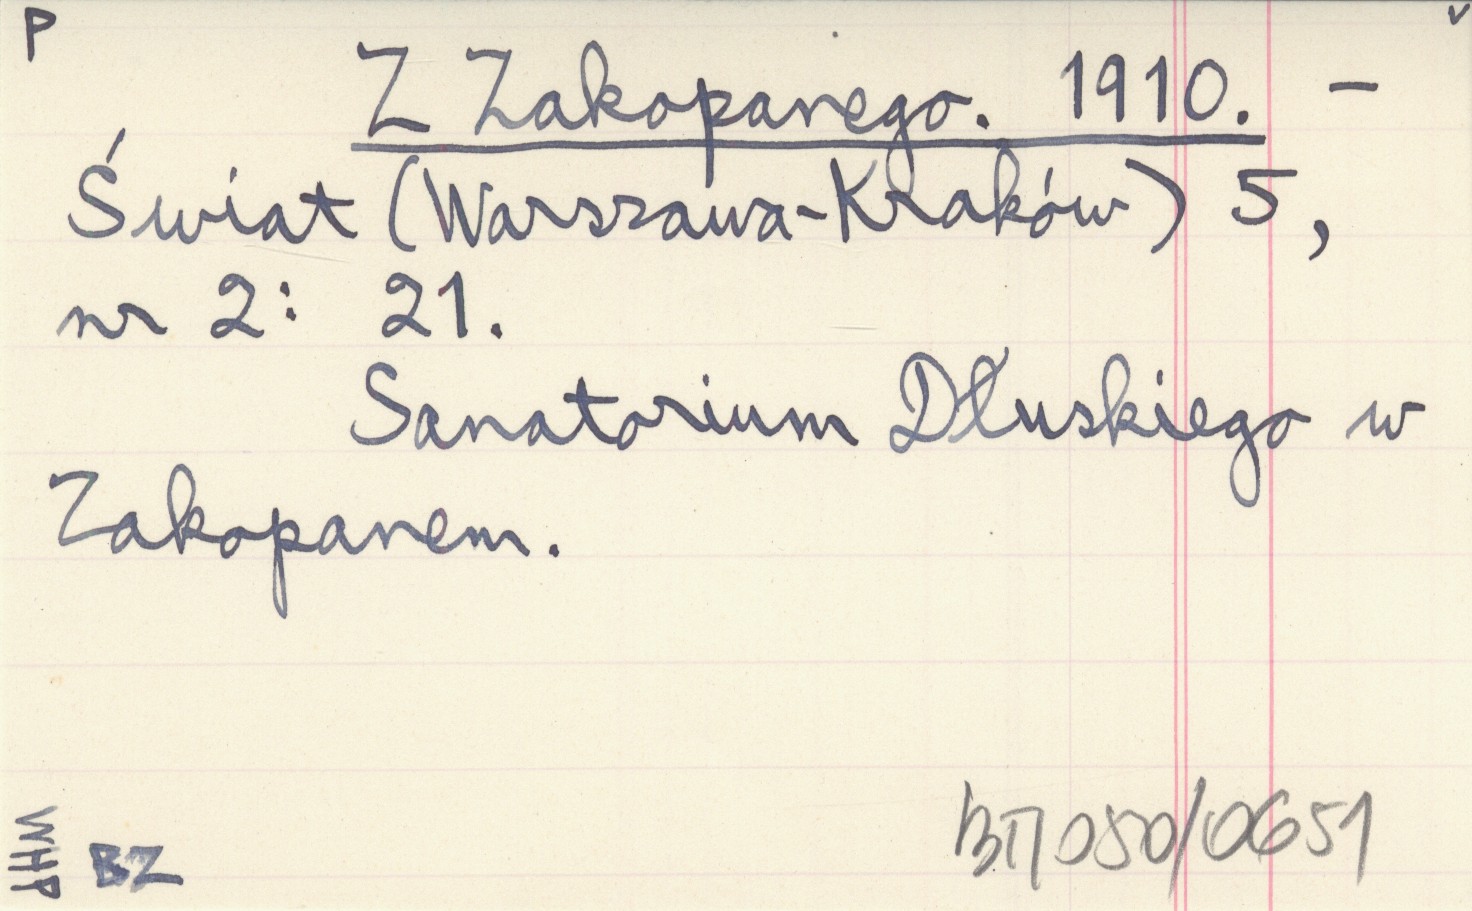 P
v
Z Zakopanego. 1910. –
Świat (Warszawa-Kraków) 5,
nr 2: 21.
Sanatorium Dłuskiego w
Zakopanem.
WHP
BZ
050/0651